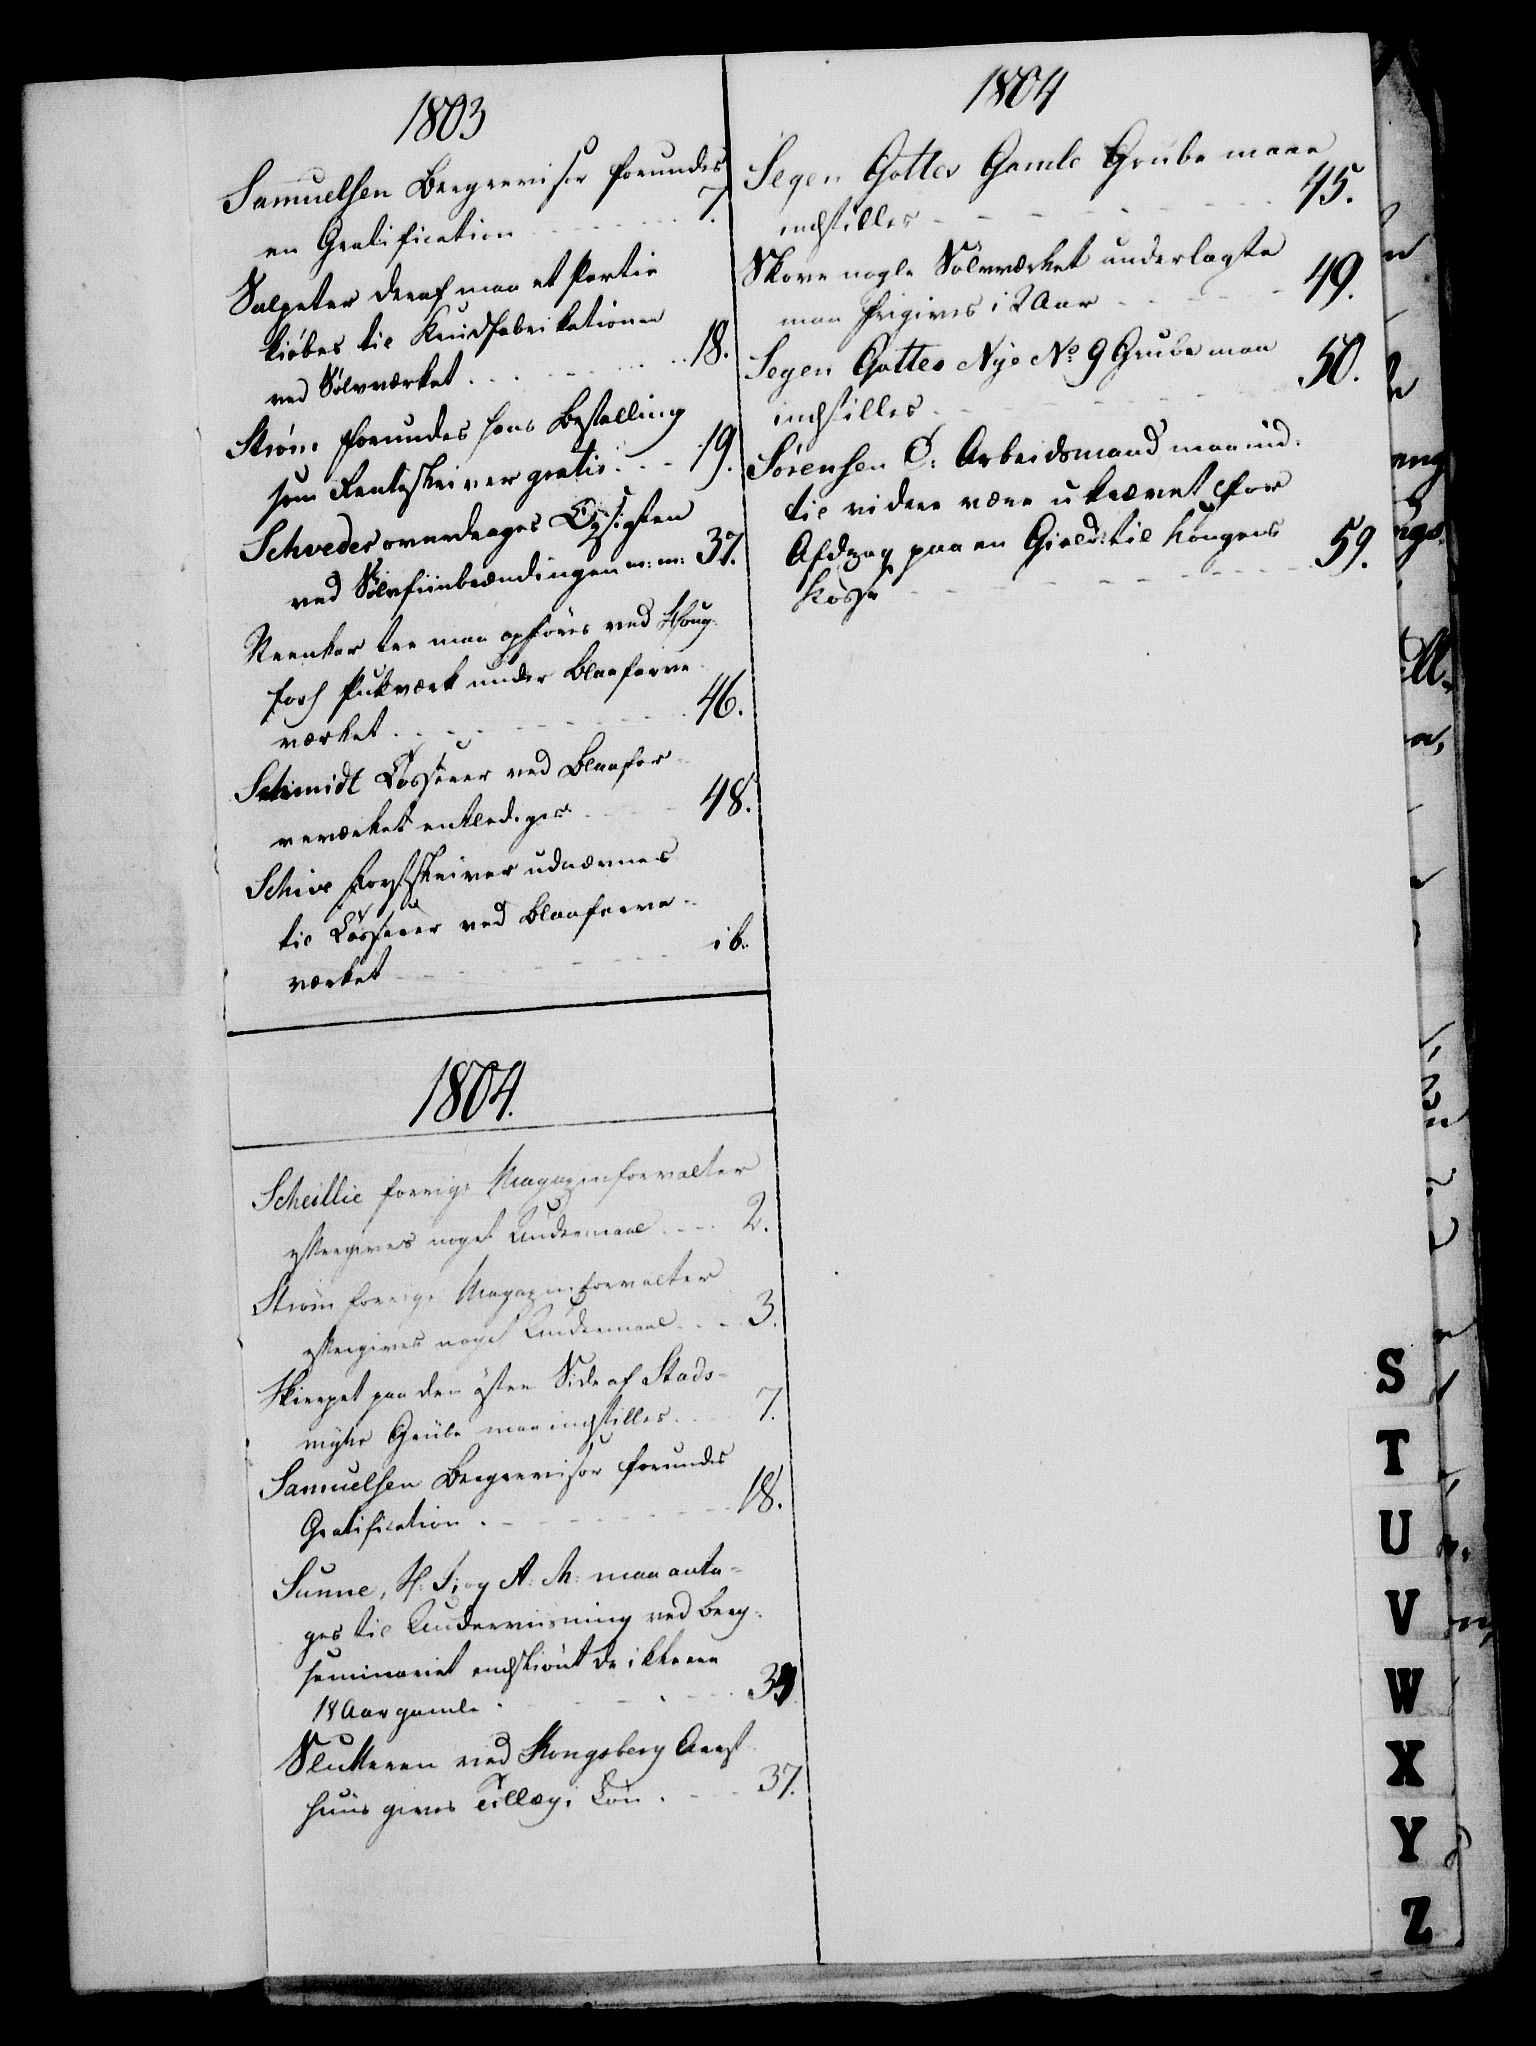 1803
Samuelsen Bergrevisor forundes
en Gratification - - - - 7.
Salpeter deraf maa et Partie
kiøbes til Krudfabrikationen
ved Sølvværket - - - - 18.
Strøm forundes hans Bestalling
som Renteskriver gratis - - - 19.
Schveder overdrages Opsigten
ved Sølvfiinbrændingen m: m: 37.
Steenkar tre maa opføres ved Houg-
fors Pukværk under Blaafarve
værket - - - - 46.
Schmidt Casserer ved Blaafar-
veværket entlediges - - - - 48.
Schive Forstskriver udnævnes
til Casserer ved Blaafarve-
værket - - - - ib.
1804.
Scheillie forrige Magazinforvalter
eftergives noget Undermaal - - - 2.
Strøm forrige Magazinforvalter
eftergives noget Undermaal - - - 3.
Skierpet paa den østre Side af Stads-
myhr Grube maa indstilles - - - 7.
Samuelsen Bergrevisor forundes
Gratification - - - - 18.
Sunne, H: S: og A: M: maa anta-
ges til Underviisning ved Berg-
seminariet endskiønt de ikke ere
18 Aar gamle - - - -
Slutteren ved Kongsberg Arrest
huus gives Tillæg i Løn - - - 37.
1804
Segen Gottes Gamle Grube maae
indstilles - - - - 45.
Skove nogle Sølvværket underlagte
maa frigives i 2 Aar - - - - 49.
Segen Gottes Nye No 9 Grube maa
indstilles - - - - 50.
Sørensen O: Arbeidsmand maa ind-
til videre være ukrævet for
Afdrag paa en Gield til Kongens
Kasse - - - - 59.
S
T
U
V
W
X
Y
Z